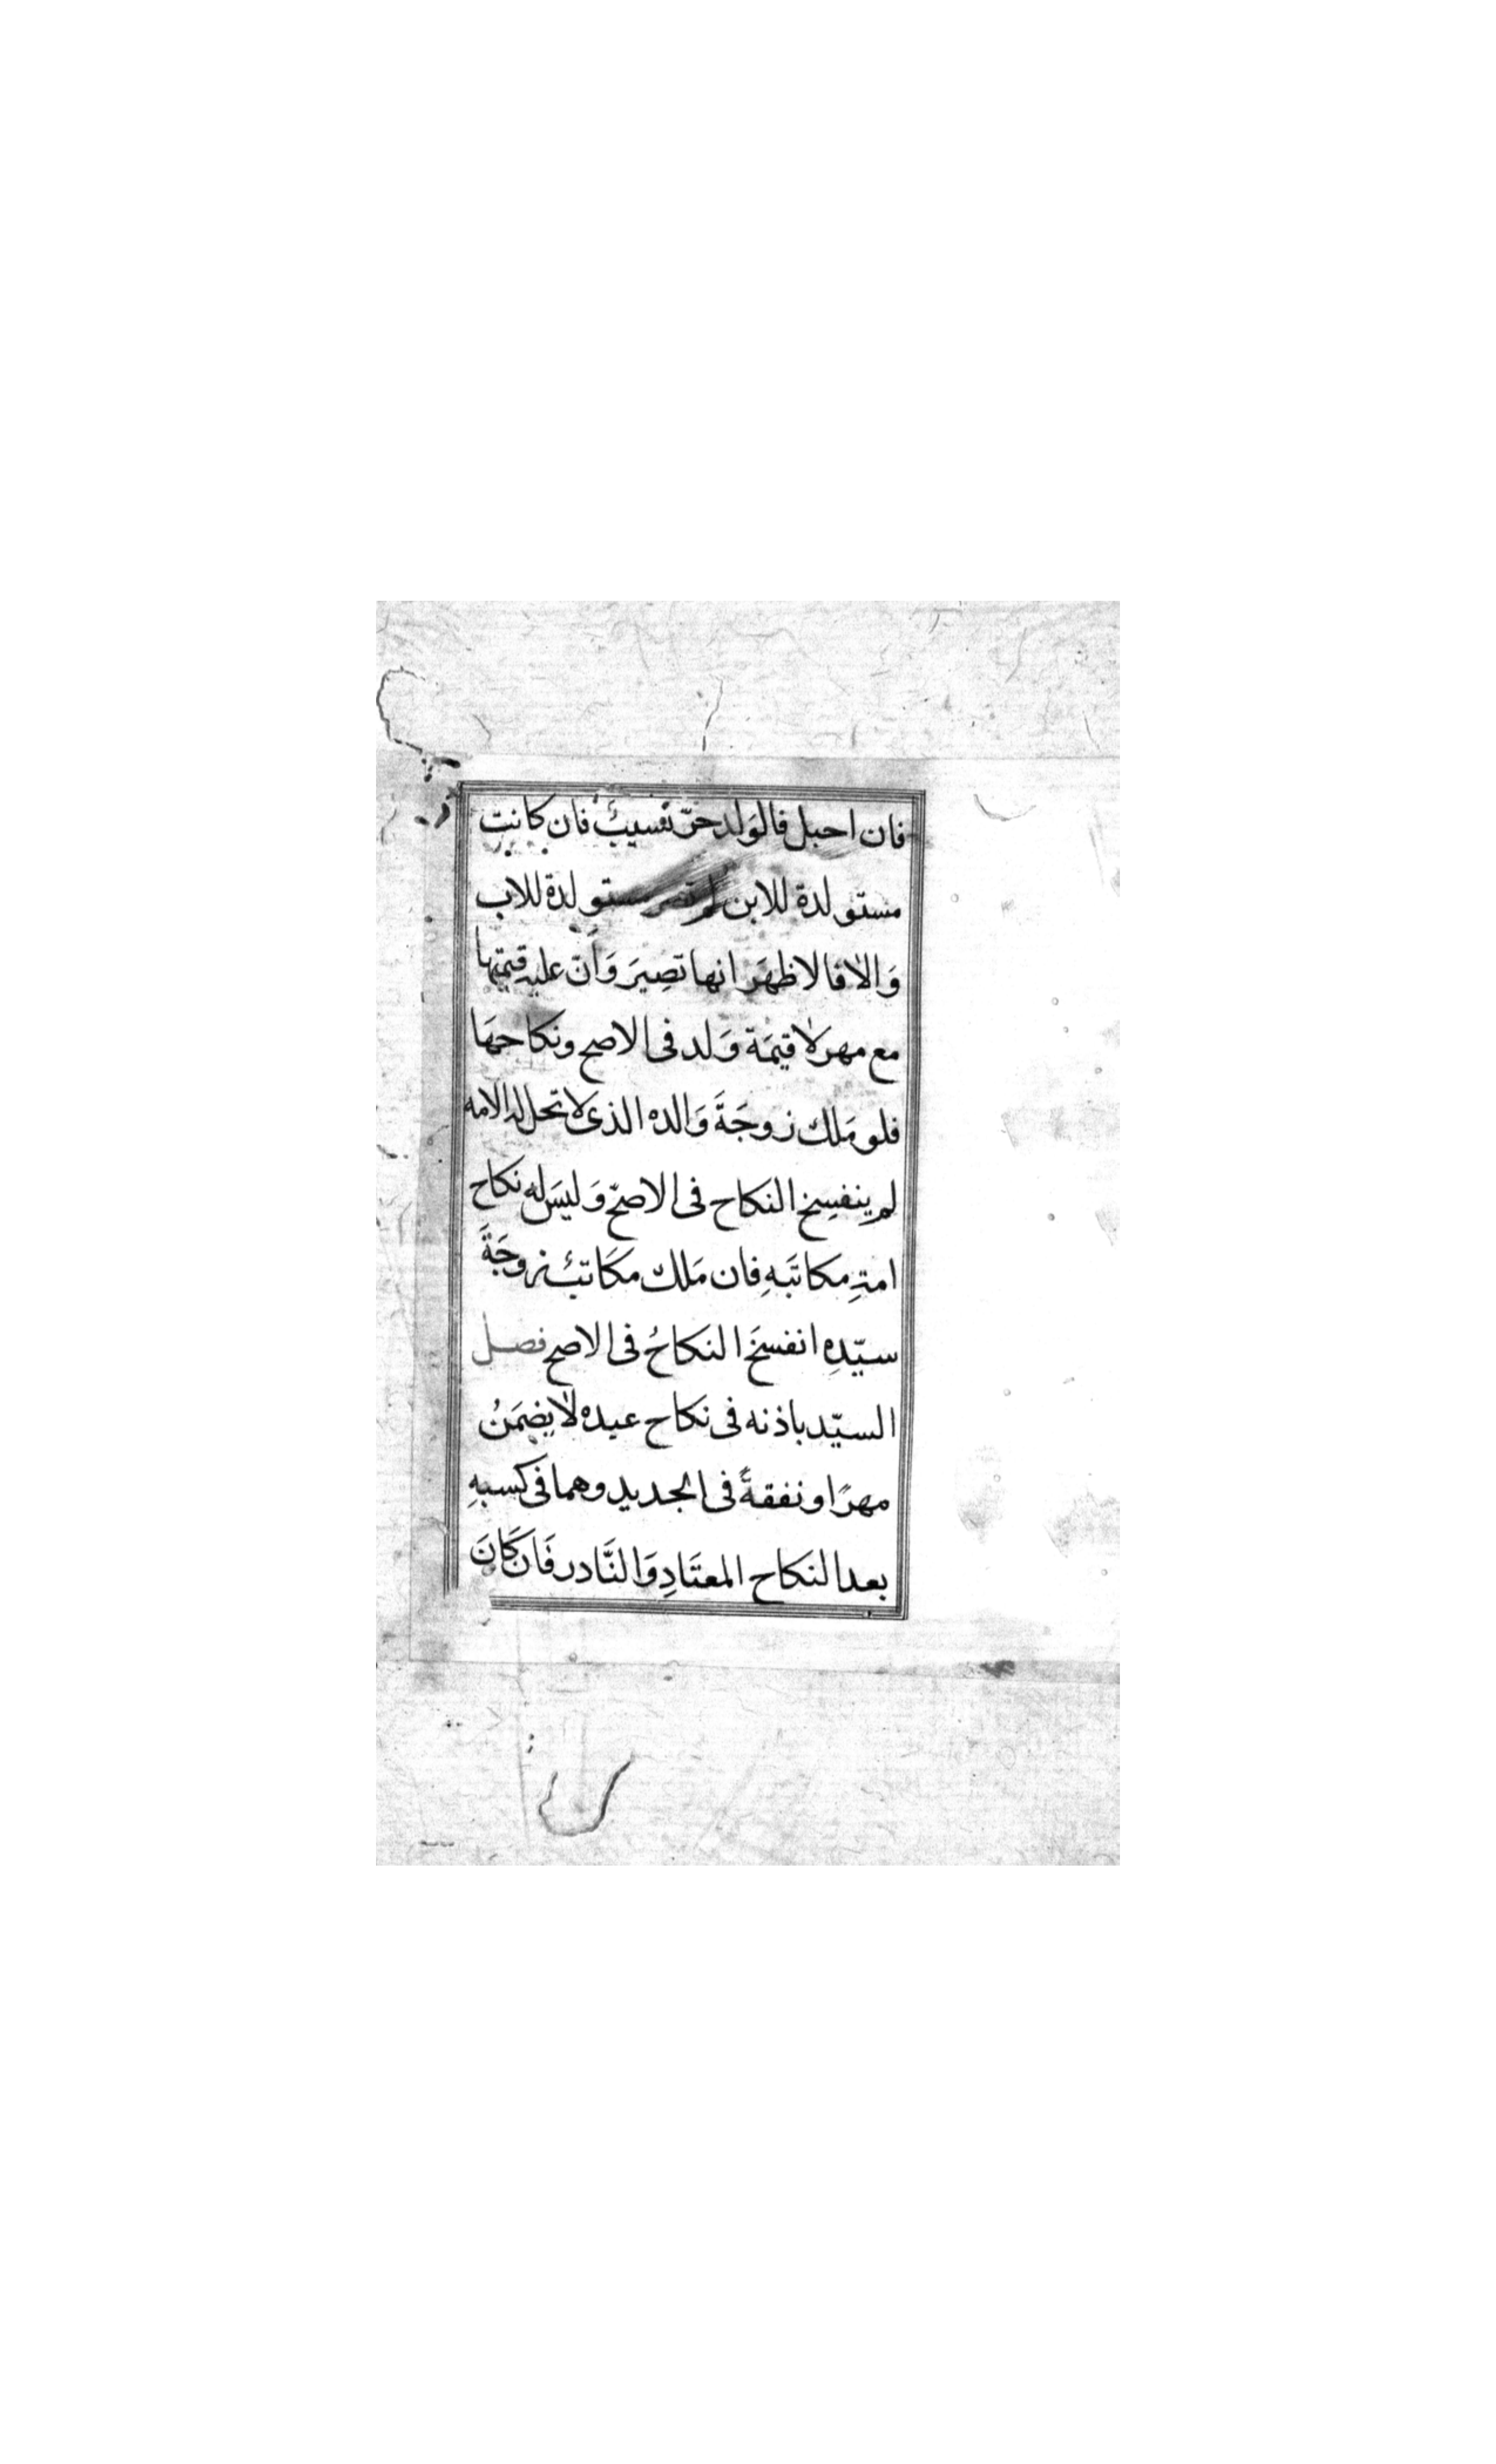 فان احبل فالوَلد حرّ نسيبٌ فان كانت
مستولدة للابن لم تصر مستولدة للاب
وَالا فالاظهَر انها تصِيَر وَأنّ عليه قيمتها
مع مهر لا قيمَة وَلد فى الاصح ونكاحهَا
فلو مَلك زوجَةَ وَالده الذى لا تحل له الامه
لم ينفسِخ النكاح فى الاصحّ وَليسَ له نكاح
امةِ مكاتَبهِ فان مَلك مكَاتبٌ زوجَةَ
سيّدِه انفسخَ النكاحُ فى الاصح فصل
السيّد باذنه فى نكاح عبده لا يضمَنُ
مهرًا ونفقةً فى الجديد وهما فى كسبهِ
بعد النكاح المعتَادِ وَالنَّادر فَان كَانَ